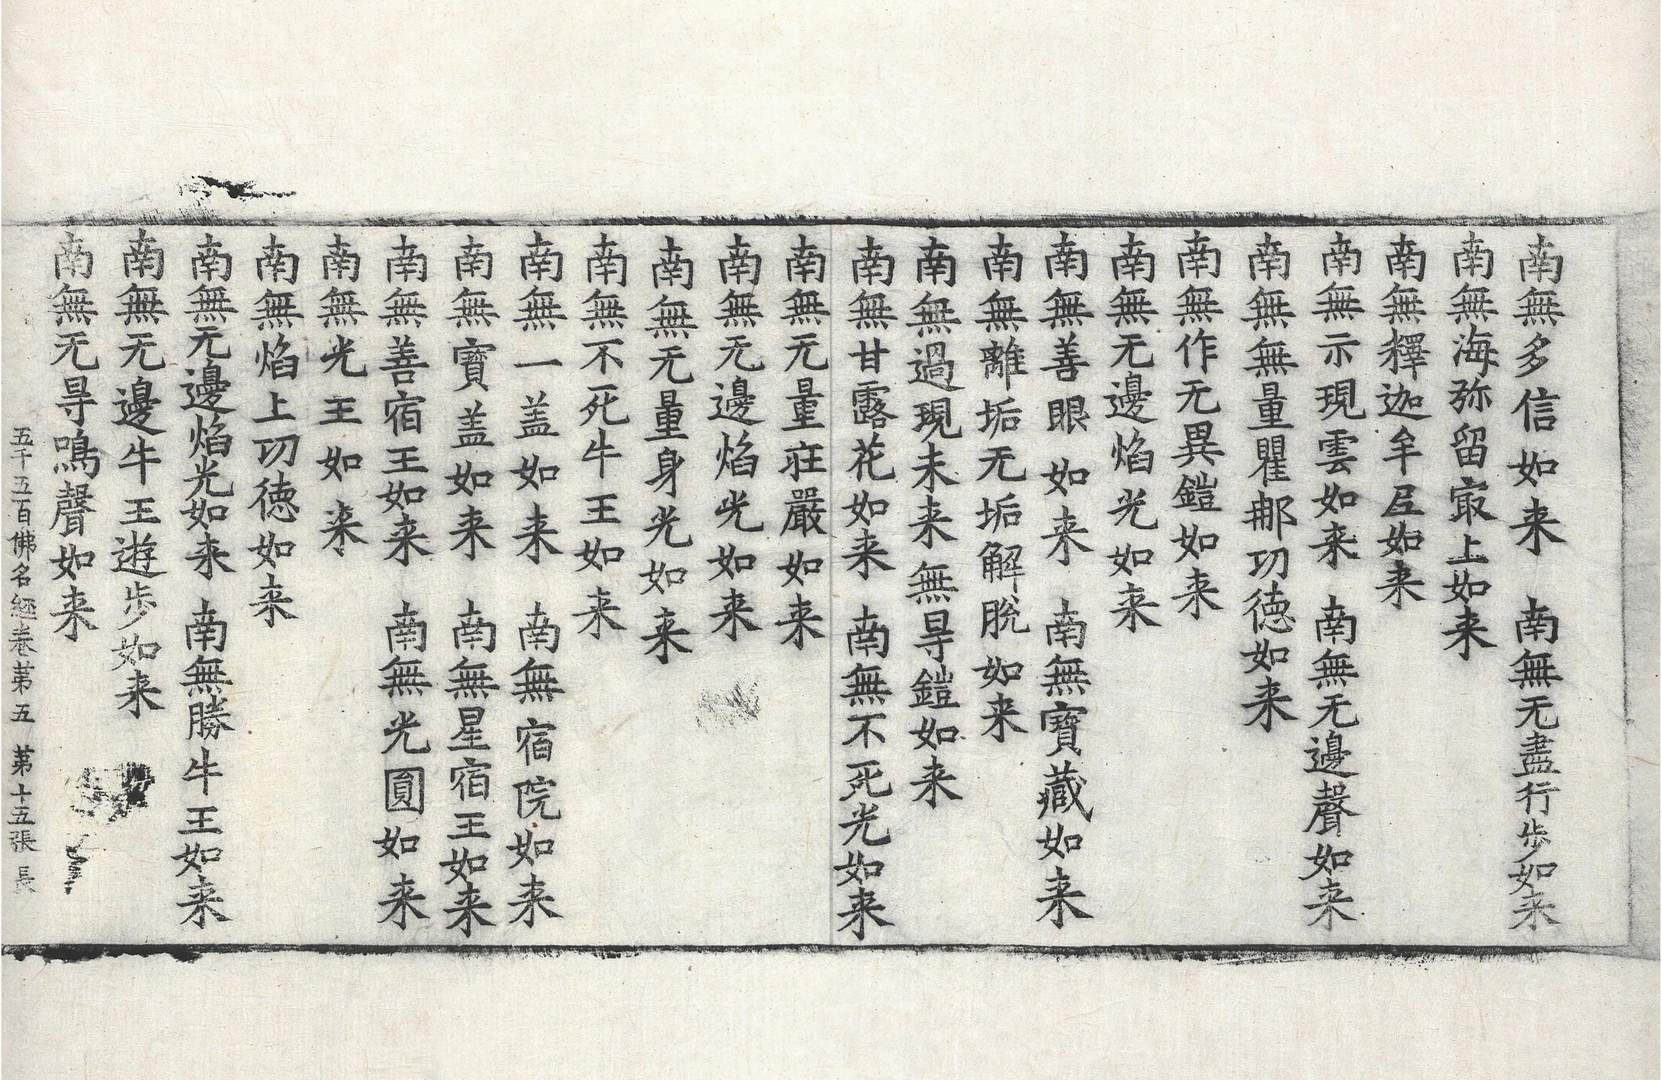 南無多信如来　南無无盡行步如来
南無海弥留㝡上如来
南無釋迦牟𡰱如来
南無示現雲如来　南無无邊聲如来
南無無量瞿那功徳如来
南無作无異鎧如来
南無无邊焰光如来
南無善眼如来　南無寶藏如来
南無離垢无垢解脫如来
南無過現未来無㝵鎧如来
南無甘露花如来　南無不死光如来
南無无量莊嚴如来
南無无邊焰光如来
南無无量身光如来
南無不死牛王如来
南無一盖如来　南無宿院如来
南無寶盖如来　南無星宿王如来
南無善宿王如来　南無光圓如来
南無光王如来
南無焰上功徳如来
南無无邊焰光如来　南無勝牛王如来
南無无邊牛王遊步如来
南無无㝵鳴聲如来
五千五百佛名經卷第五　第十五張　長